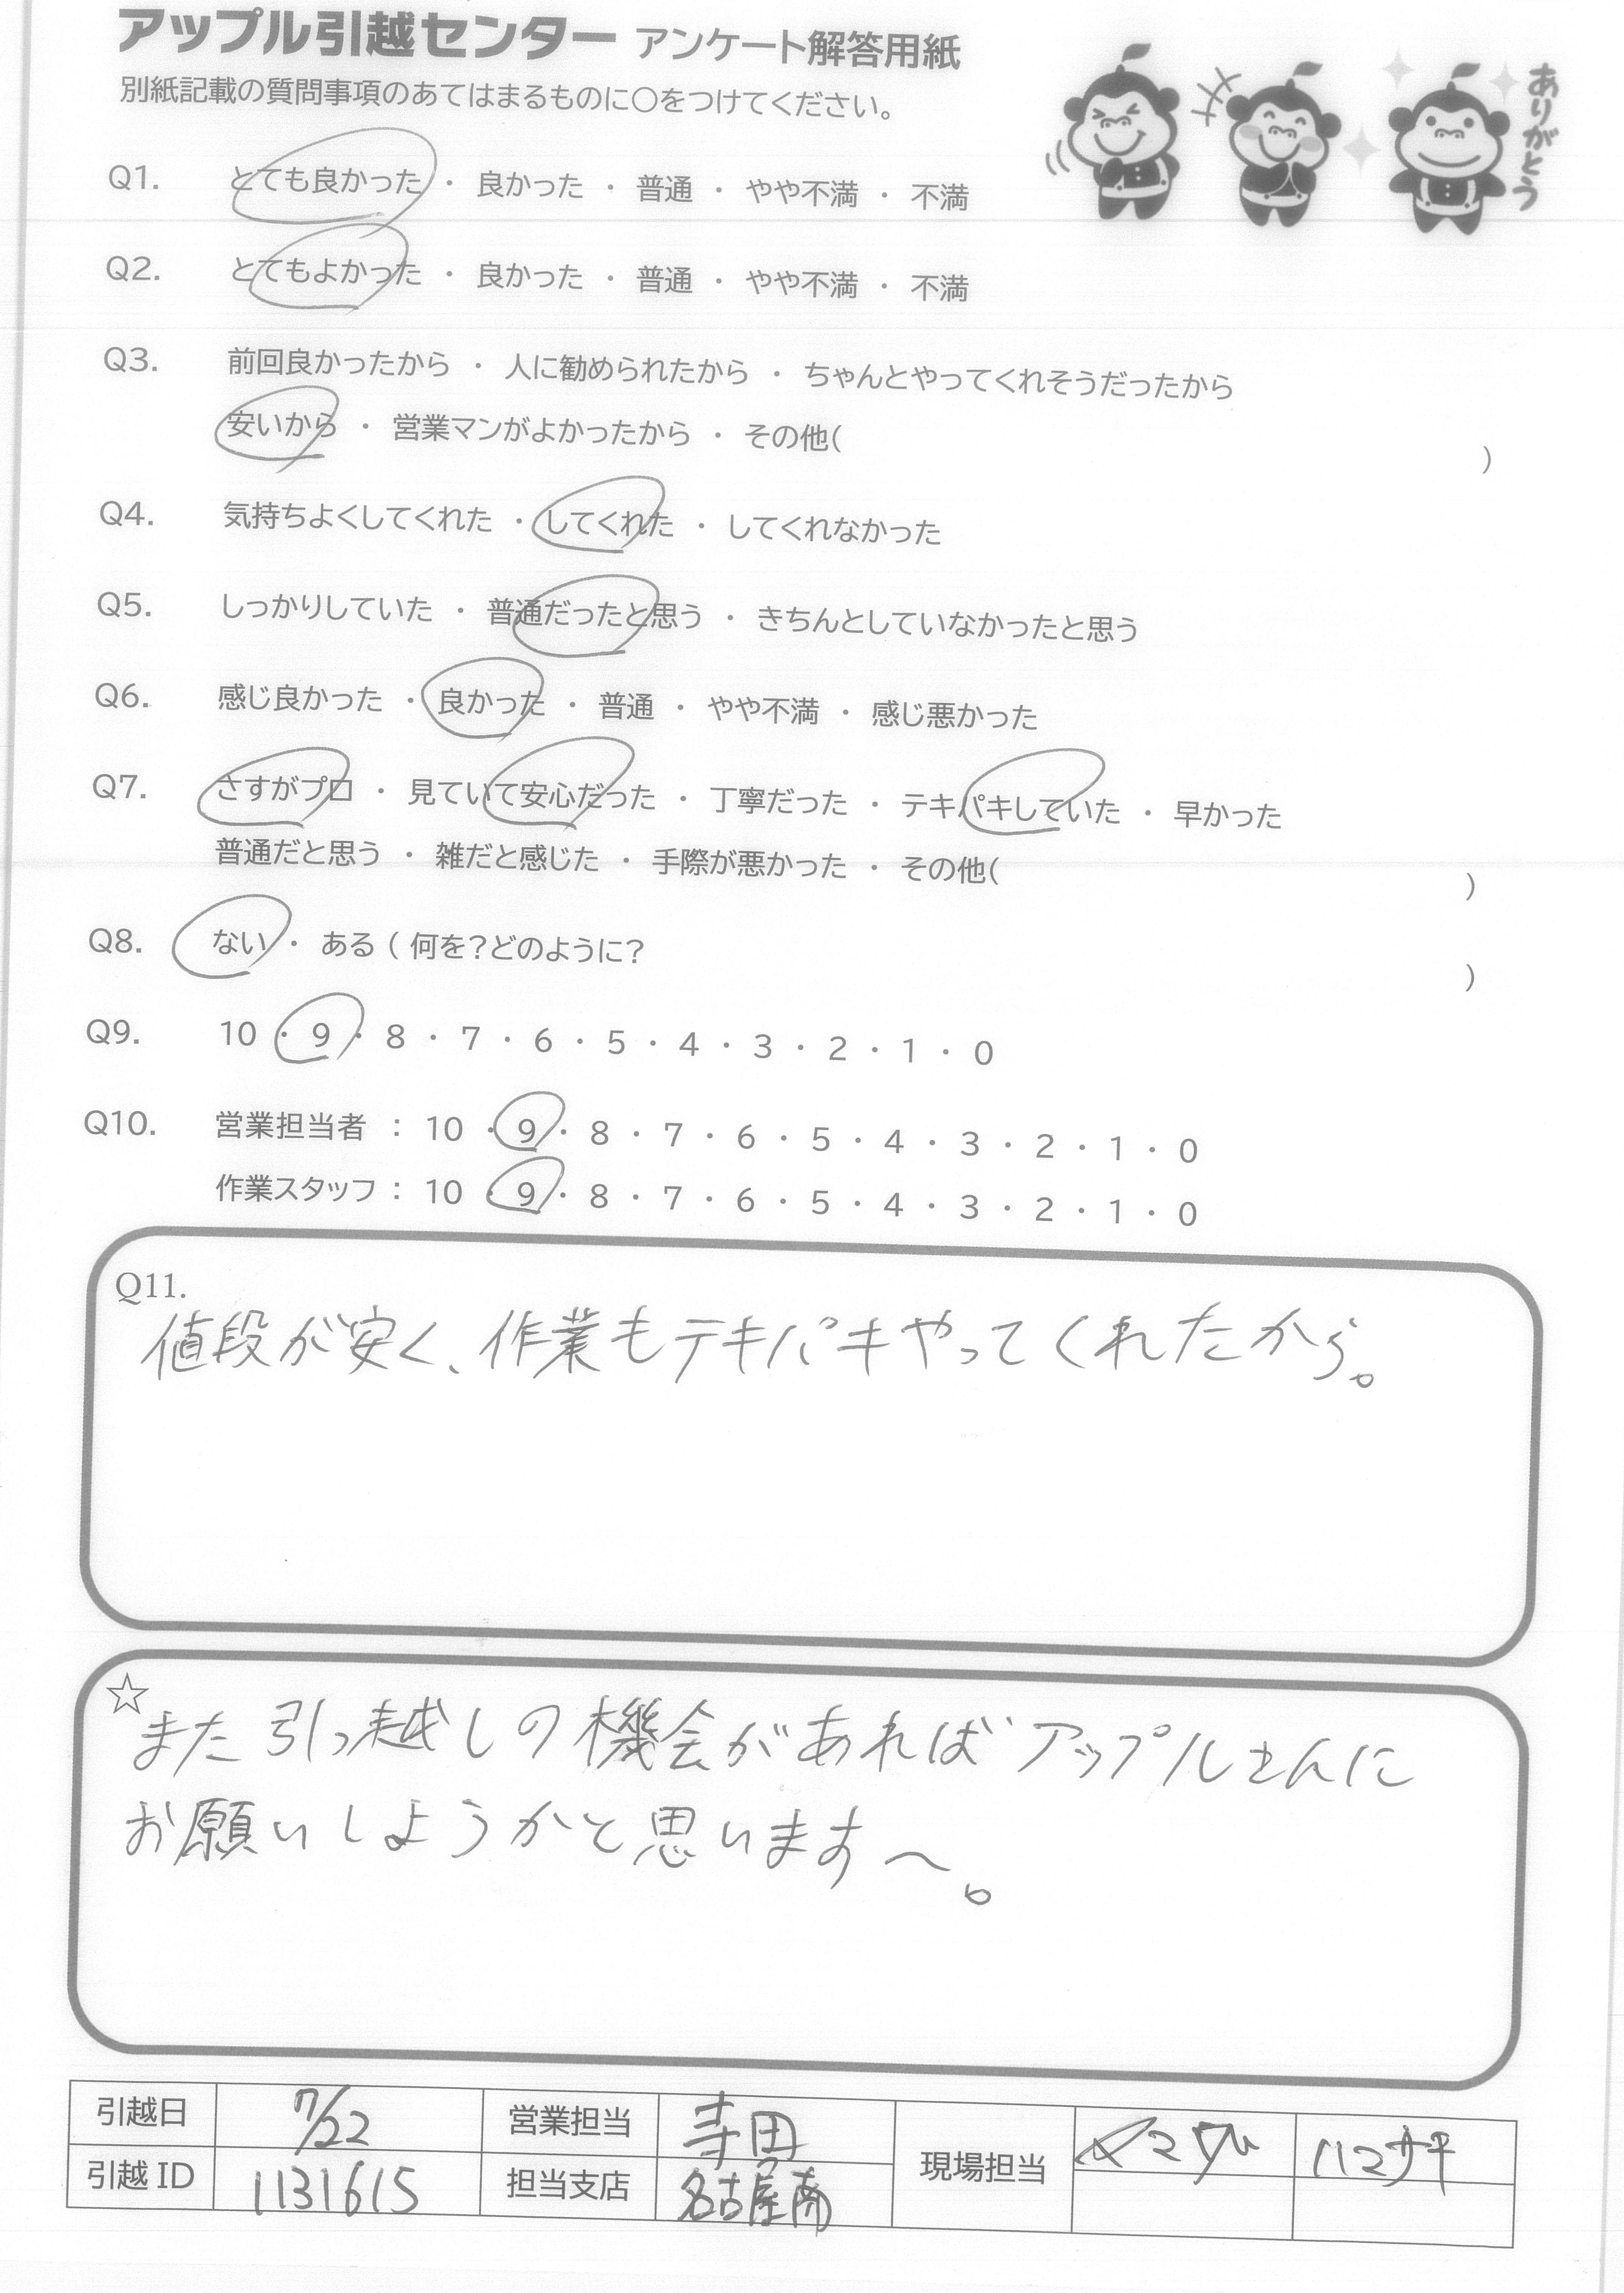 アップル引越センター アンケート解答用紙
別紙記載の質問事項のあてはまるものに○をつけてください。
ありがとう
Q1. とても良かった ・ 良かった ・ 普通 ・ やや不満 ・ 不満
Q2. とてもよかった ・ 良かった ・ 普通 ・ やや不満 ・ 不満
Q3. 前回良かったから ・ 人に勧められたから ・ ちゃんとやってくれそうだったから
安いから ・ 営業マンがよかったから ・ その他( )
Q4. 気持ちよくしてくれた ・ してくれた ・ してくれなかった
Q5. しっかりしていた ・ 普通だったと思う ・ きちんとしていなかったと思う
Q6. 感じ良かった ・ 良かった ・ 普通 ・ やや不満 ・ 感じ悪かった
Q7. さすがプロ ・ 見ていて安心だった ・ 丁寧だった ・ テキパキしていた ・ 早かった
普通だと思う ・ 雑だと感じた ・ 手際が悪かった ・ その他( )
Q8. ない ・ ある ( 何を?どのように? )
Q9. 10 ・ 9 ・ 8 ・ 7 ・ 6 ・ 5 ・ 4 ・ 3 ・ 2 ・ 1 ・ 0
Q10. 営業担当者 : 10 ・ 9 ・ 8 ・ 7 ・ 6 ・ 5 ・ 4 ・ 3 ・ 2 ・ 1 ・ 0
作業スタッフ : 10 ・ 9 ・ 8 ・ 7 ・ 6 ・ 5 ・ 4 ・ 3 ・ 2 ・ 1 ・ 0
Q11.
値段が安く、作業もテキパキやってくれたから。
☆
また引っ越しの機会があればアップルさんに
お願いしようかと思います〜。
引越日 7/22 営業担当 寺田 現場担当
引越 ID 1131615 担当支店 名古屋南